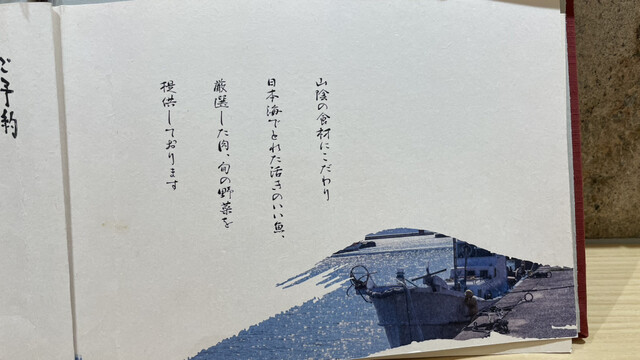 山陰の食材にこだわり
日本海でとれた活きのいい魚、
厳選した肉、旬の野菜を
提供しております
ご予約